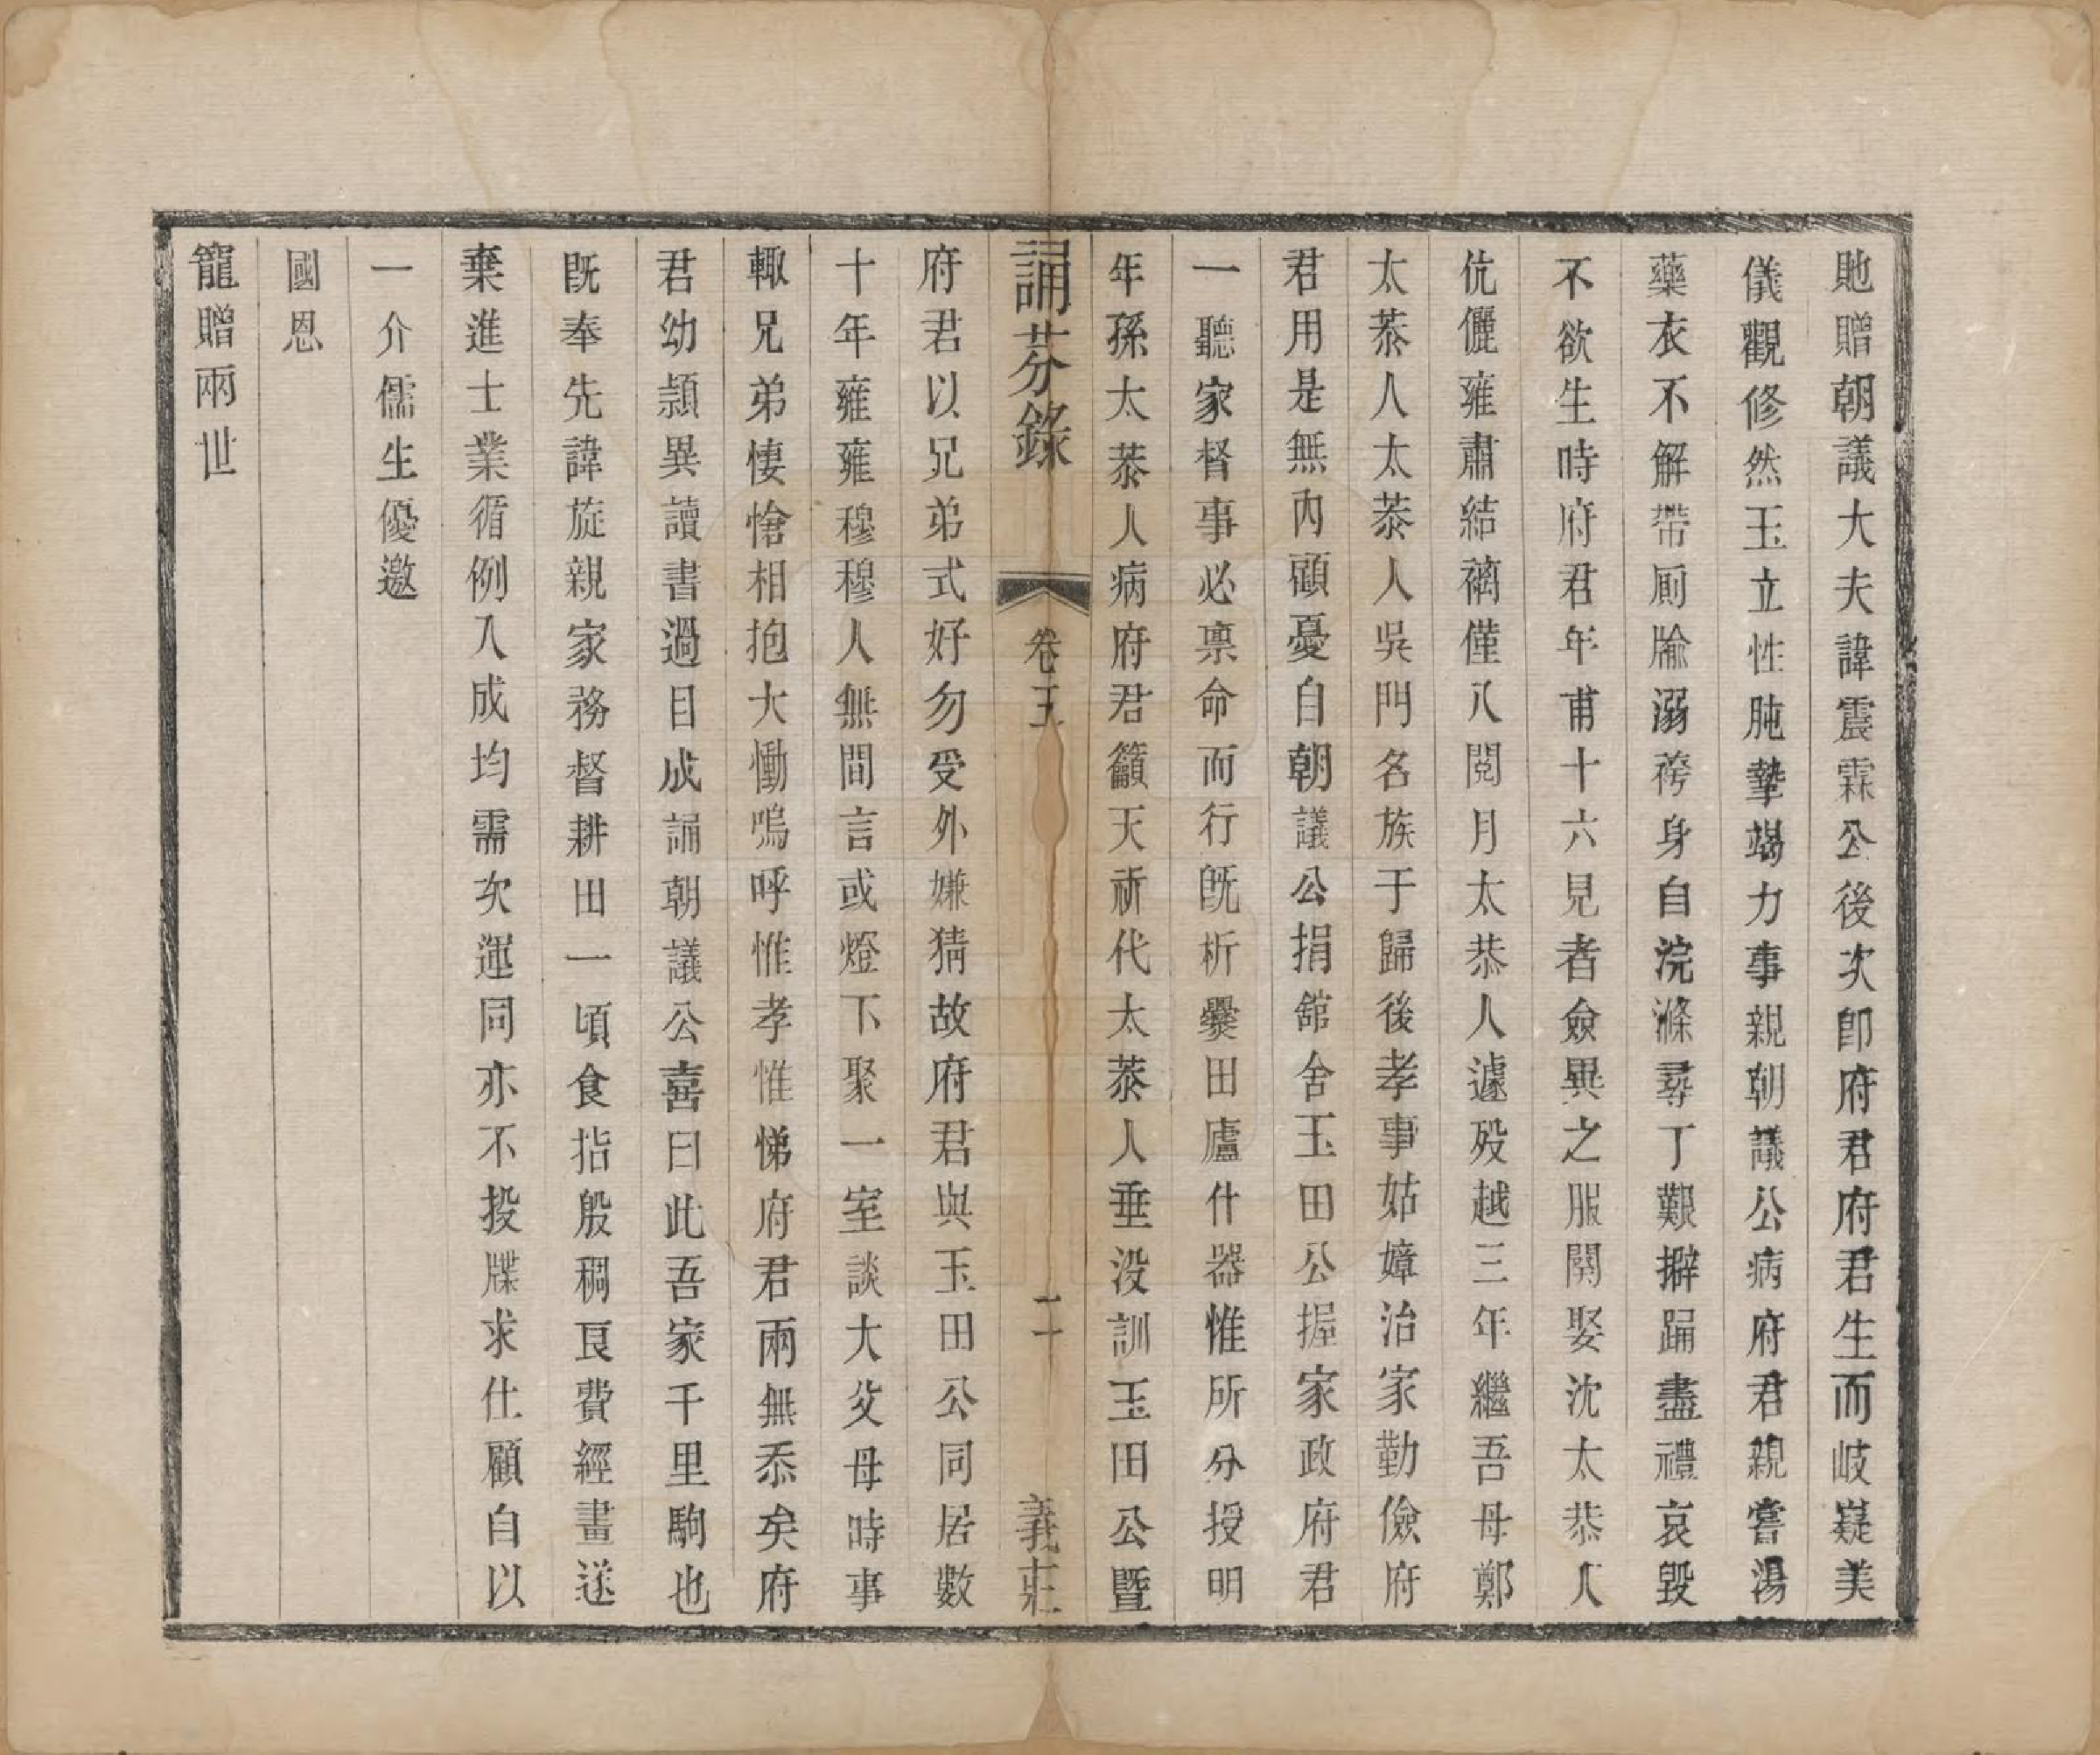 貤贈朝議大夫諱震霖公後次卽府君府君生而岐嶷美
儀觀修然玉立性肫摯竭力事親朝議公病府君親嘗湯
藥衣不解帶厠牏溺袴身自浣滌尋丁艱擗踊盡禮哀毀
不欲生時府君年甫十六見者僉異之服闋娶沈太恭人
伉儷雍肅結褵僅八閱月太恭人遽歿越三年繼吾母鄭
太恭人太恭人吳門名族于歸後孝事姑嫜治家勤儉府
君用是無內顧憂自朝議公捐舘舍玉田公握家政府君
一聽家督事必禀命而行旣析爨田廬什器惟所分授明
年孫太恭人病府君籲天祈代太恭人垂没訓玉田公暨
誦芬錄 卷五 二十 義莊
府君以兄弟式好勿受外嫌猜故府君與玉田公同居數
十年雍雍穆穆人無間言或燈下聚一室談大父母時事
輙兄弟悽愴相抱大慟嗚呼惟孝惟悌府君兩無忝矣府
君幼頴異讀書過目成誦朝議公喜曰此吾家千里駒也
旣奉先諱旋親家務督耕田一頃食指殷稠艮費經畫遂
棄進士業循例入成均需次運同亦不投牒求仕顧自以
一介儒生優邀
國恩
寵贈兩世